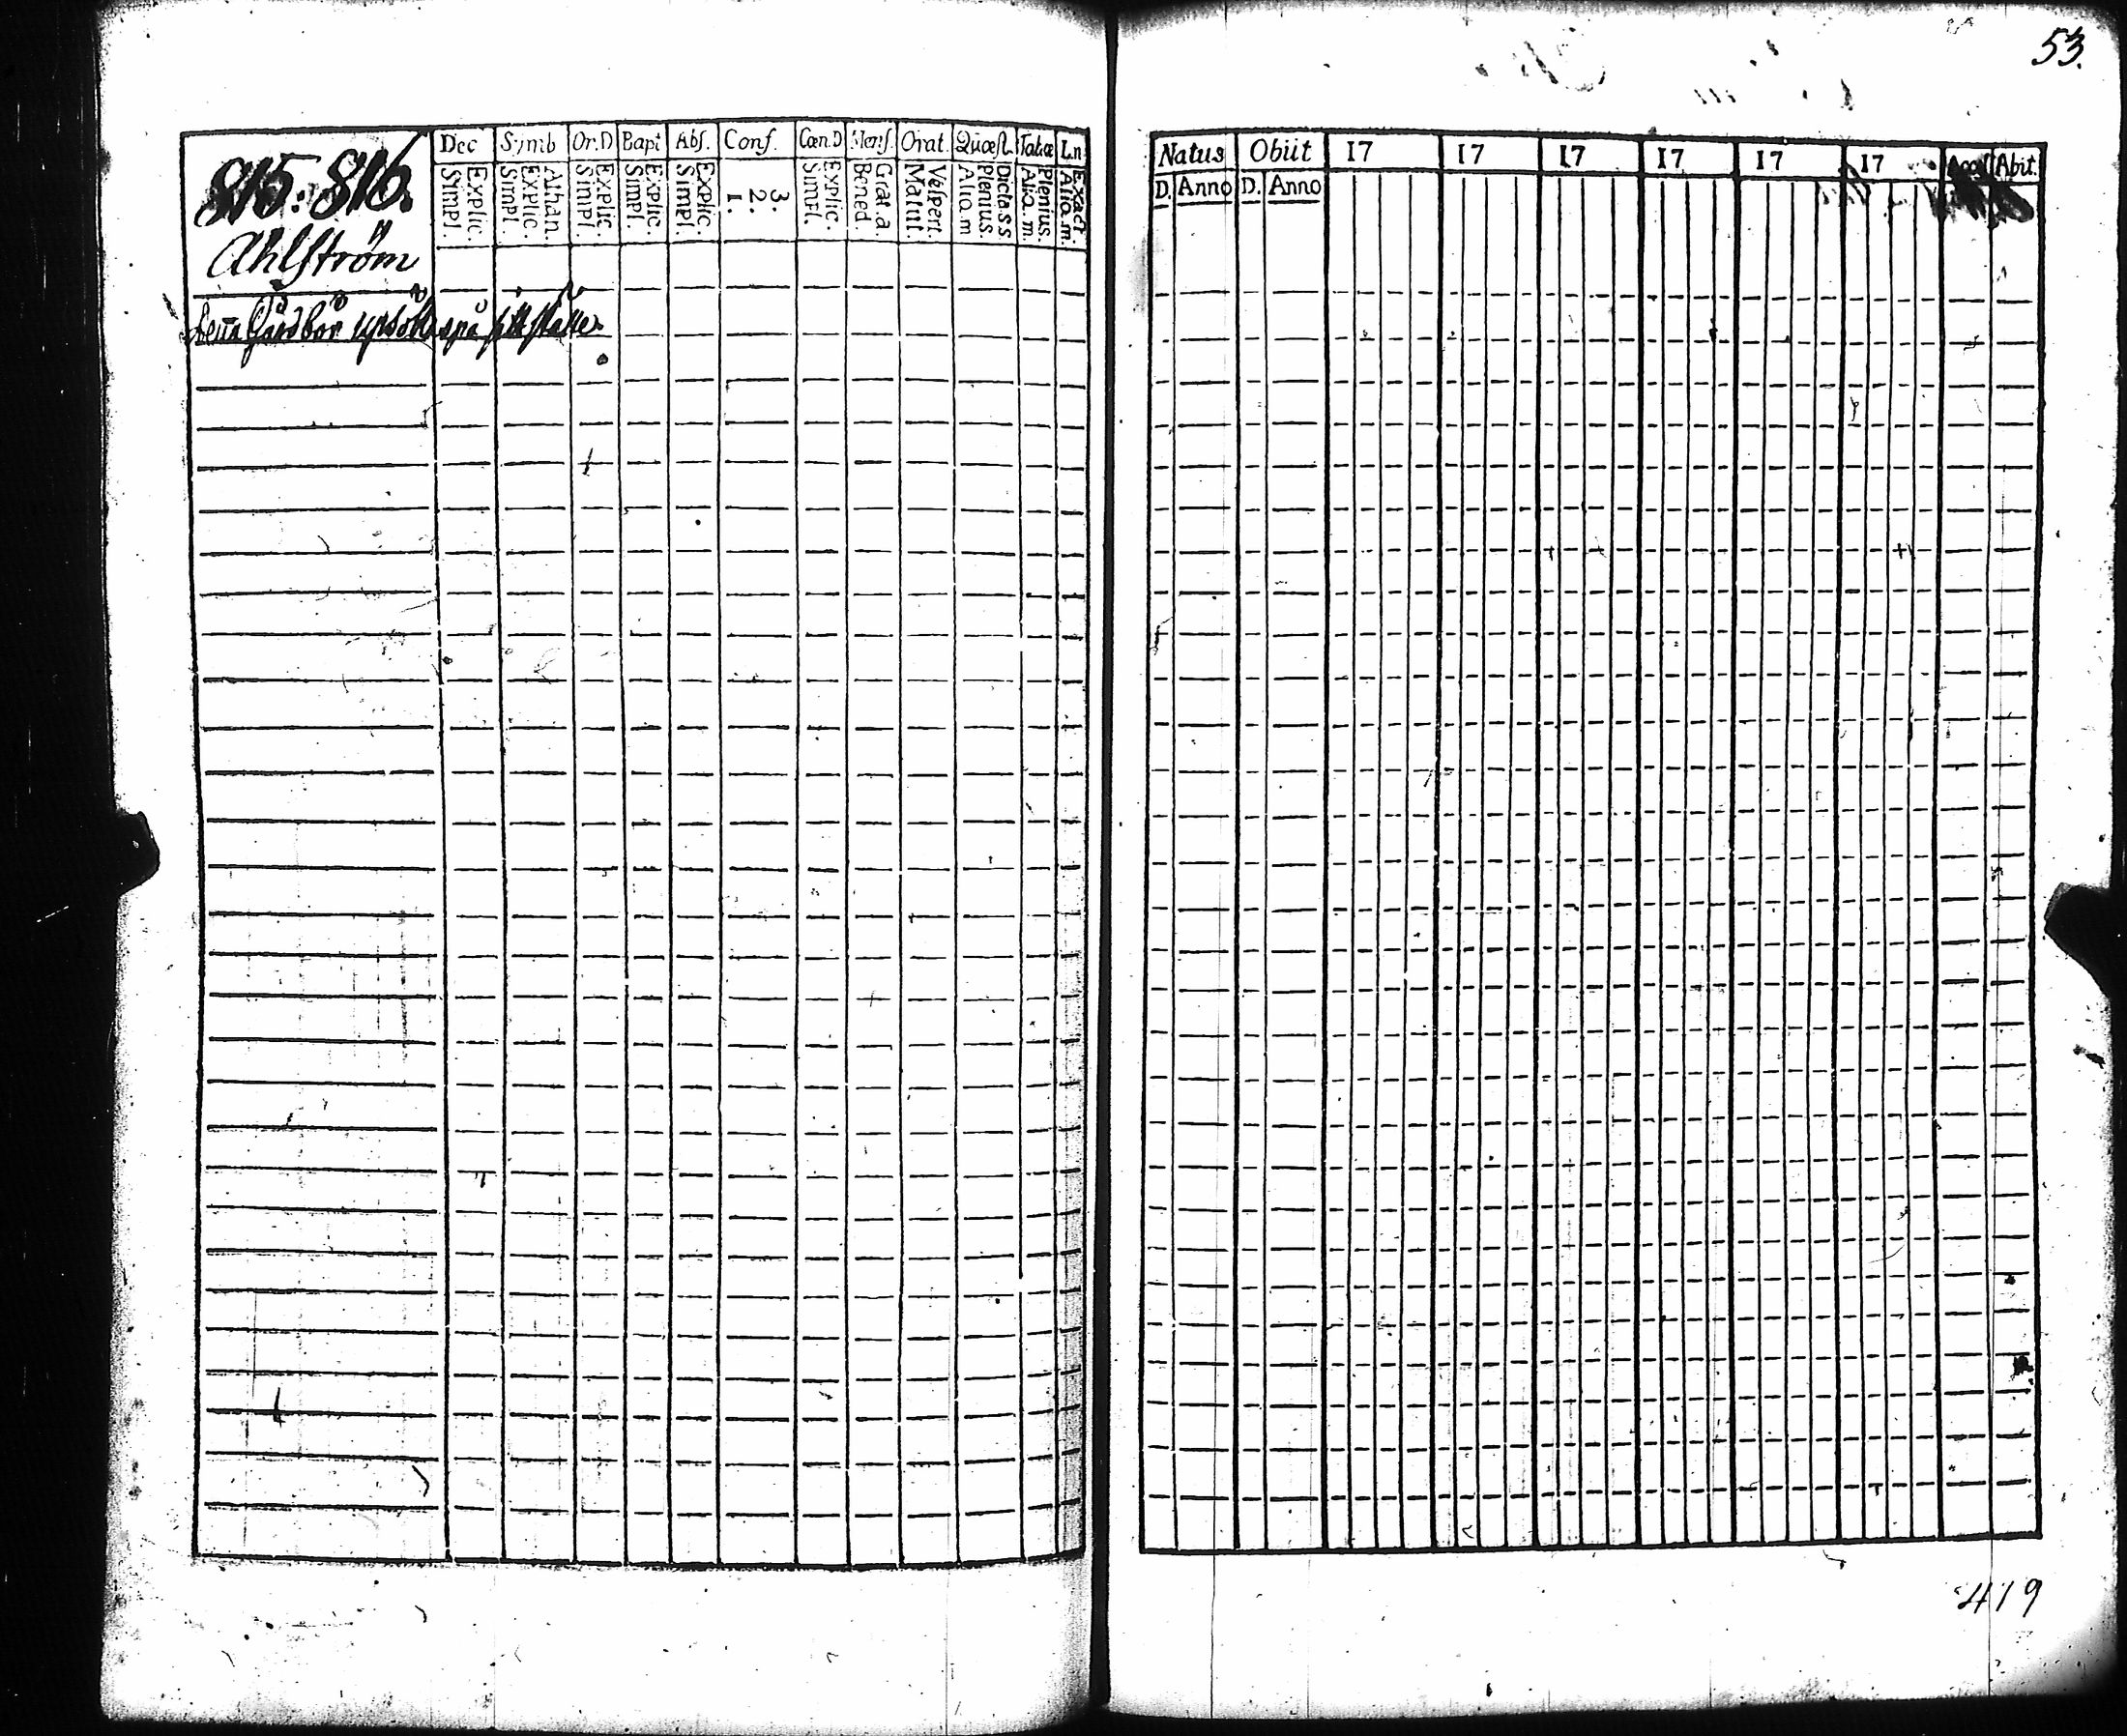 53.
815. 816.
Ahlström
Denna Gård bör upsökas på sitt ställe.
Dec Symb Or.D Bapt Abs. Conf. Cœn.D Mens. Orat. Quæst. Tabæ L.n
Explic. Simpl.
Athan. Explic. Simpl.
Explic. Simpl.
Explic. Simpl.
Explic. Simpl.
3. 2. 1.
Explic. Simpl.
Grat.a Bened.
Vespert. Matut.
Dicta.s.s Plenius. Alio.m
Plenius. Alia.m.
Exact. Alio.m.
Natus Obiit 17 17 17 17 17 17 Abit.
D. Anno D. Anno
419